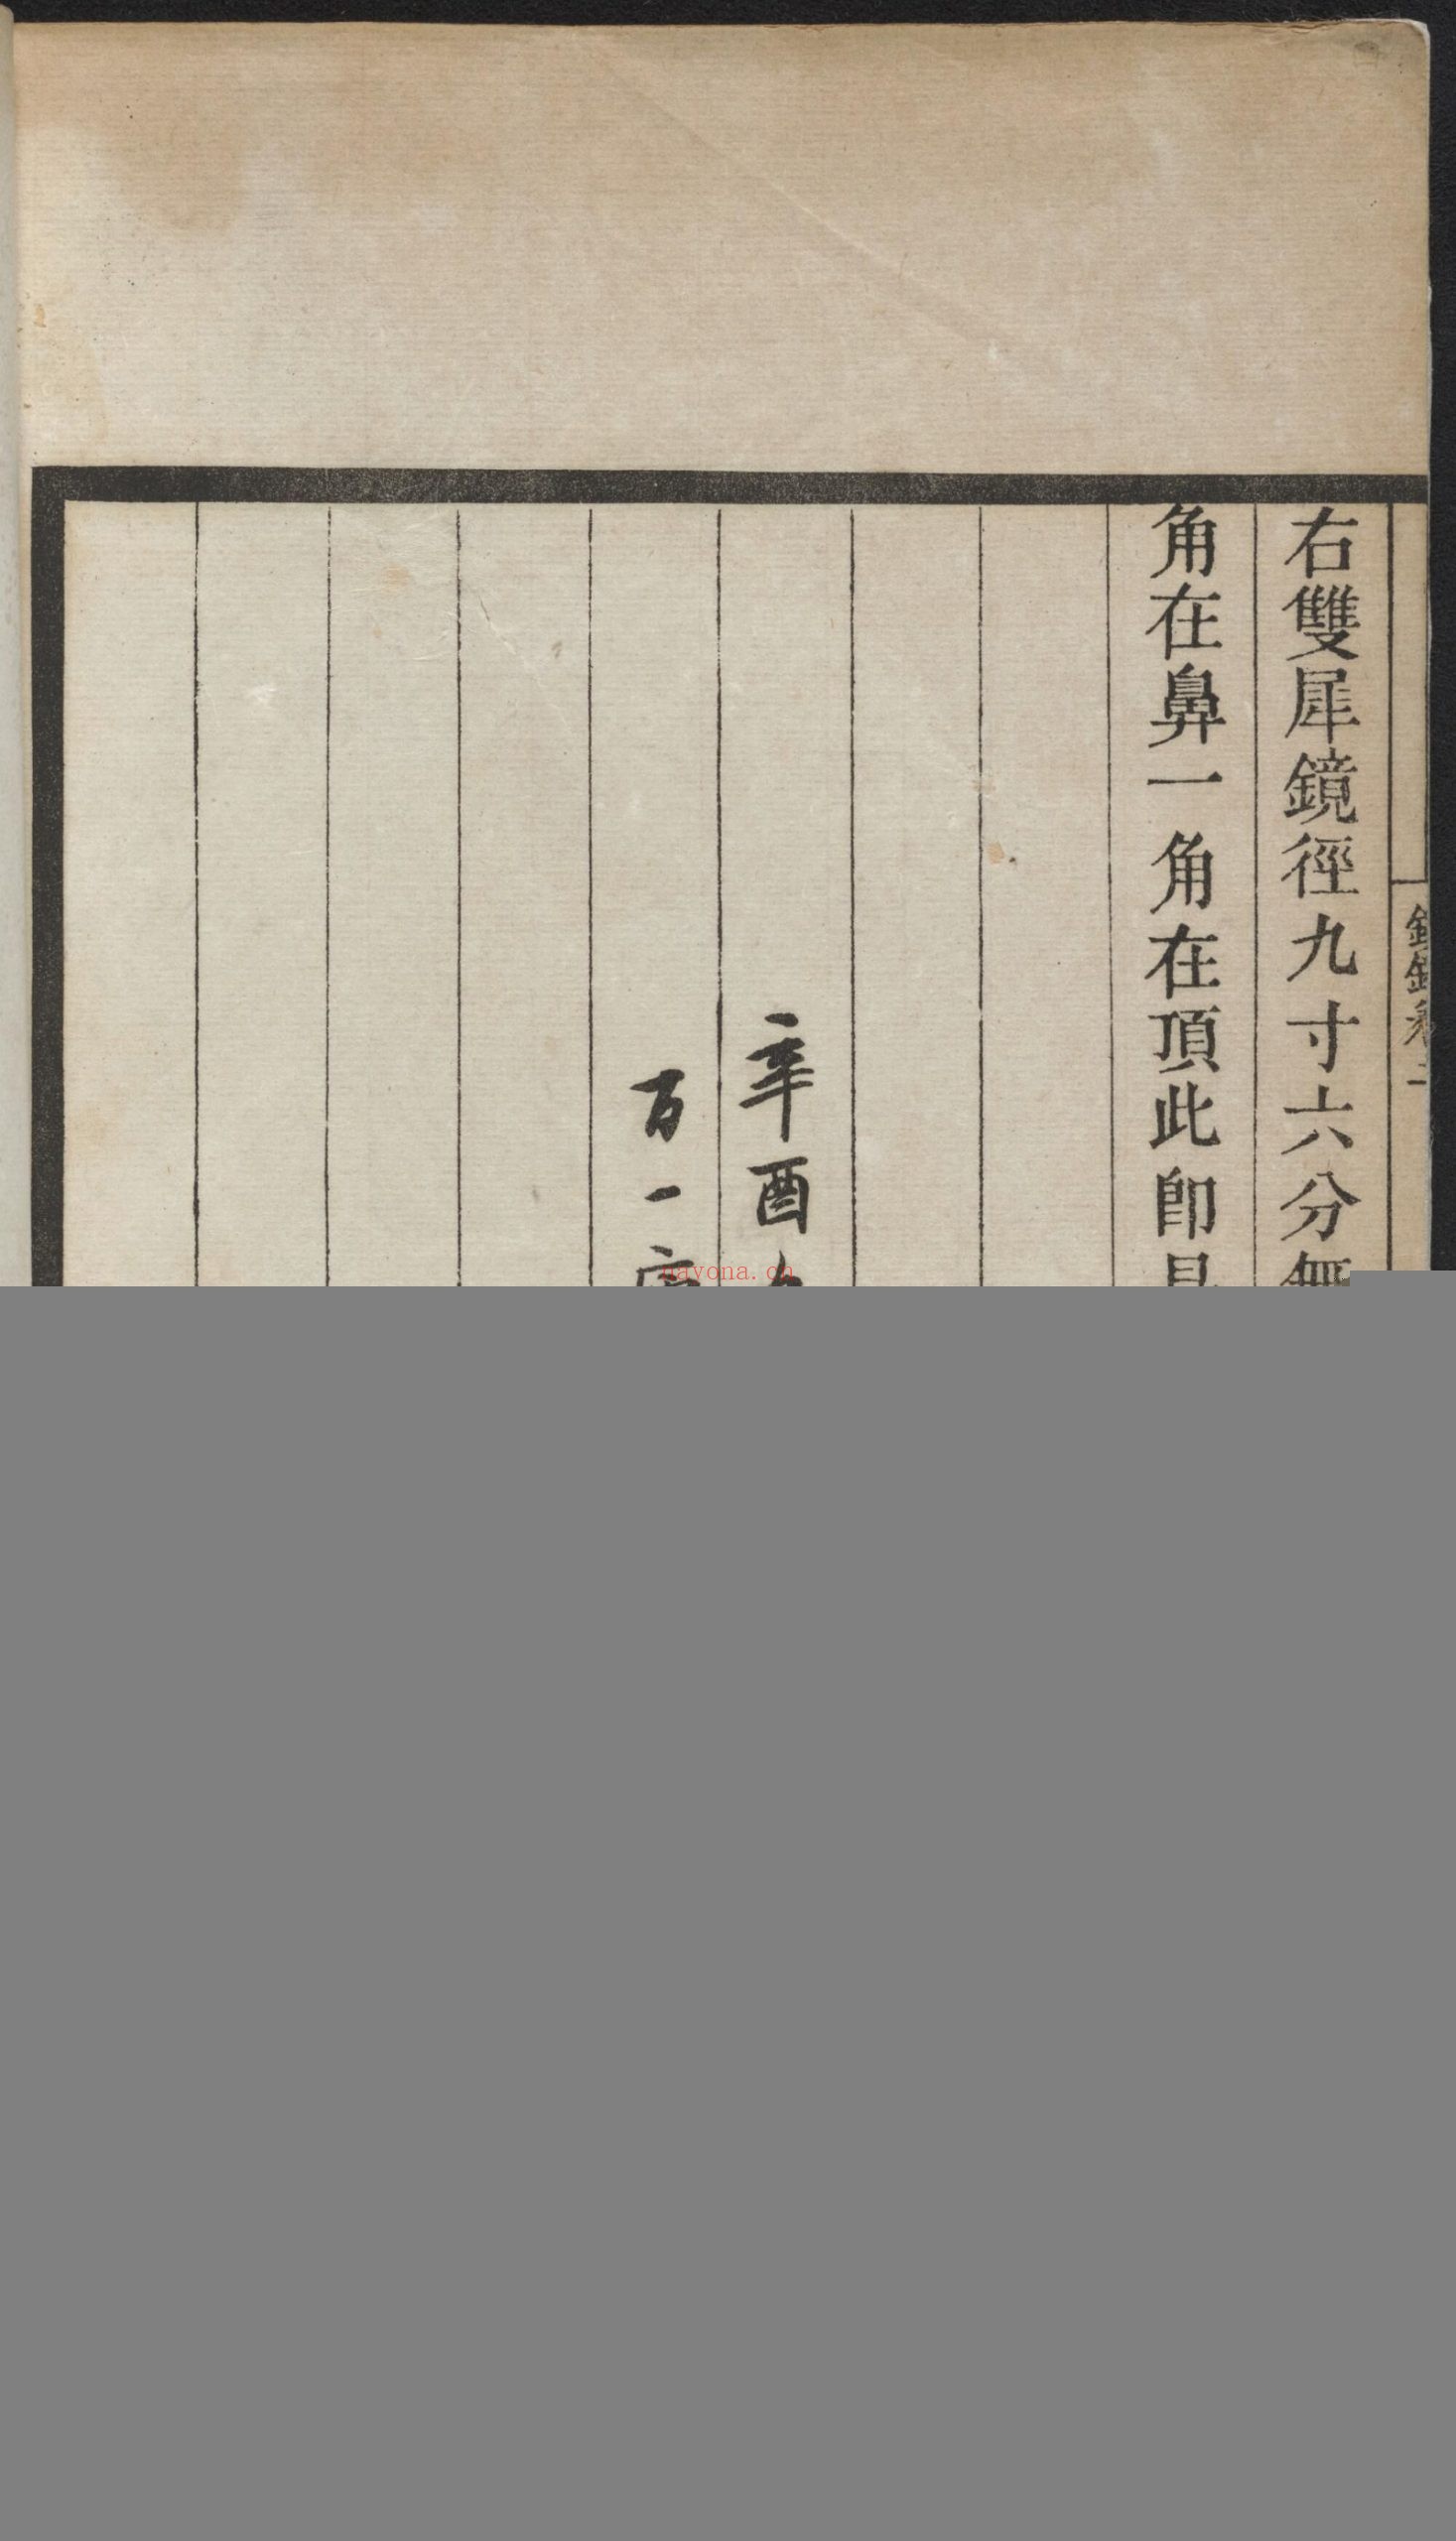 右雙犀鏡徑九寸六分無
角在鼻一角在頂此即
辛酉
百一
nayona.cn